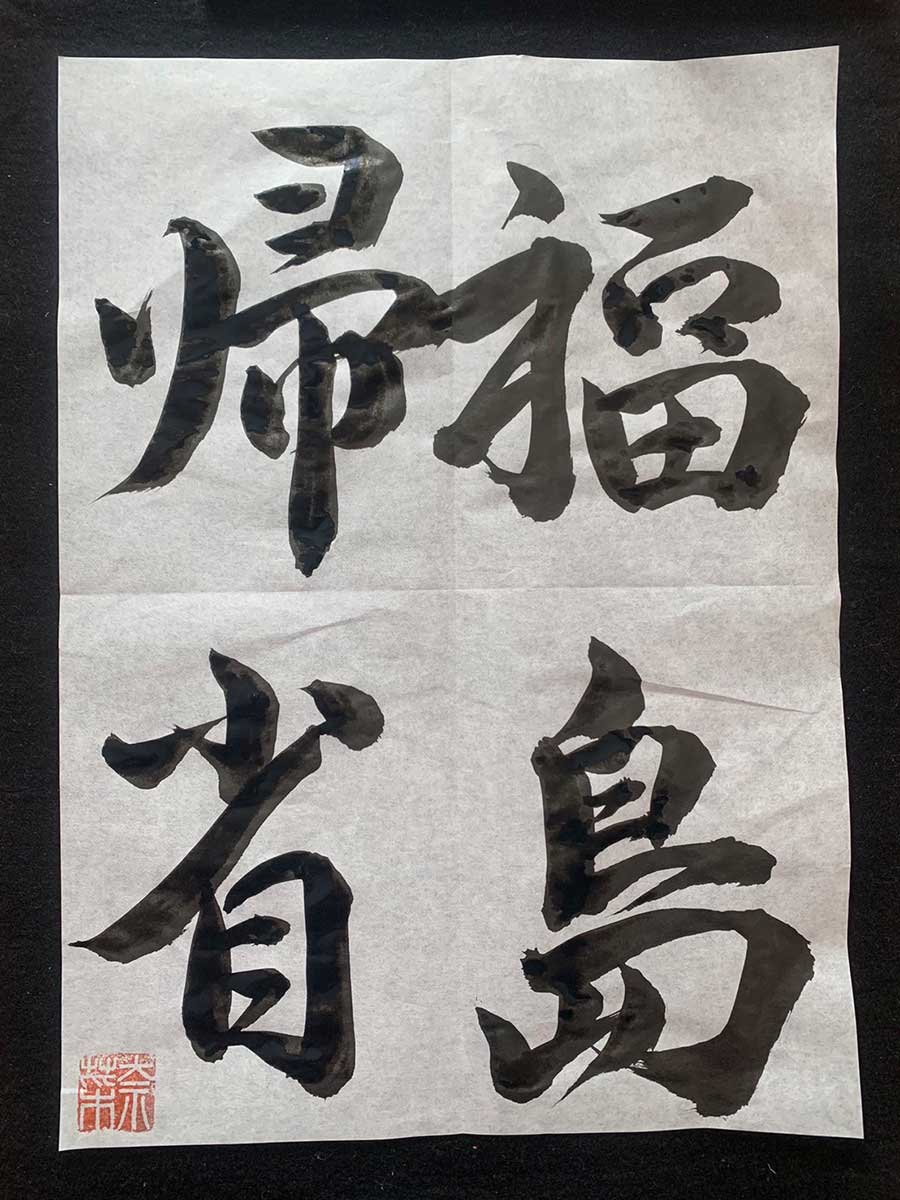 福島
帰省